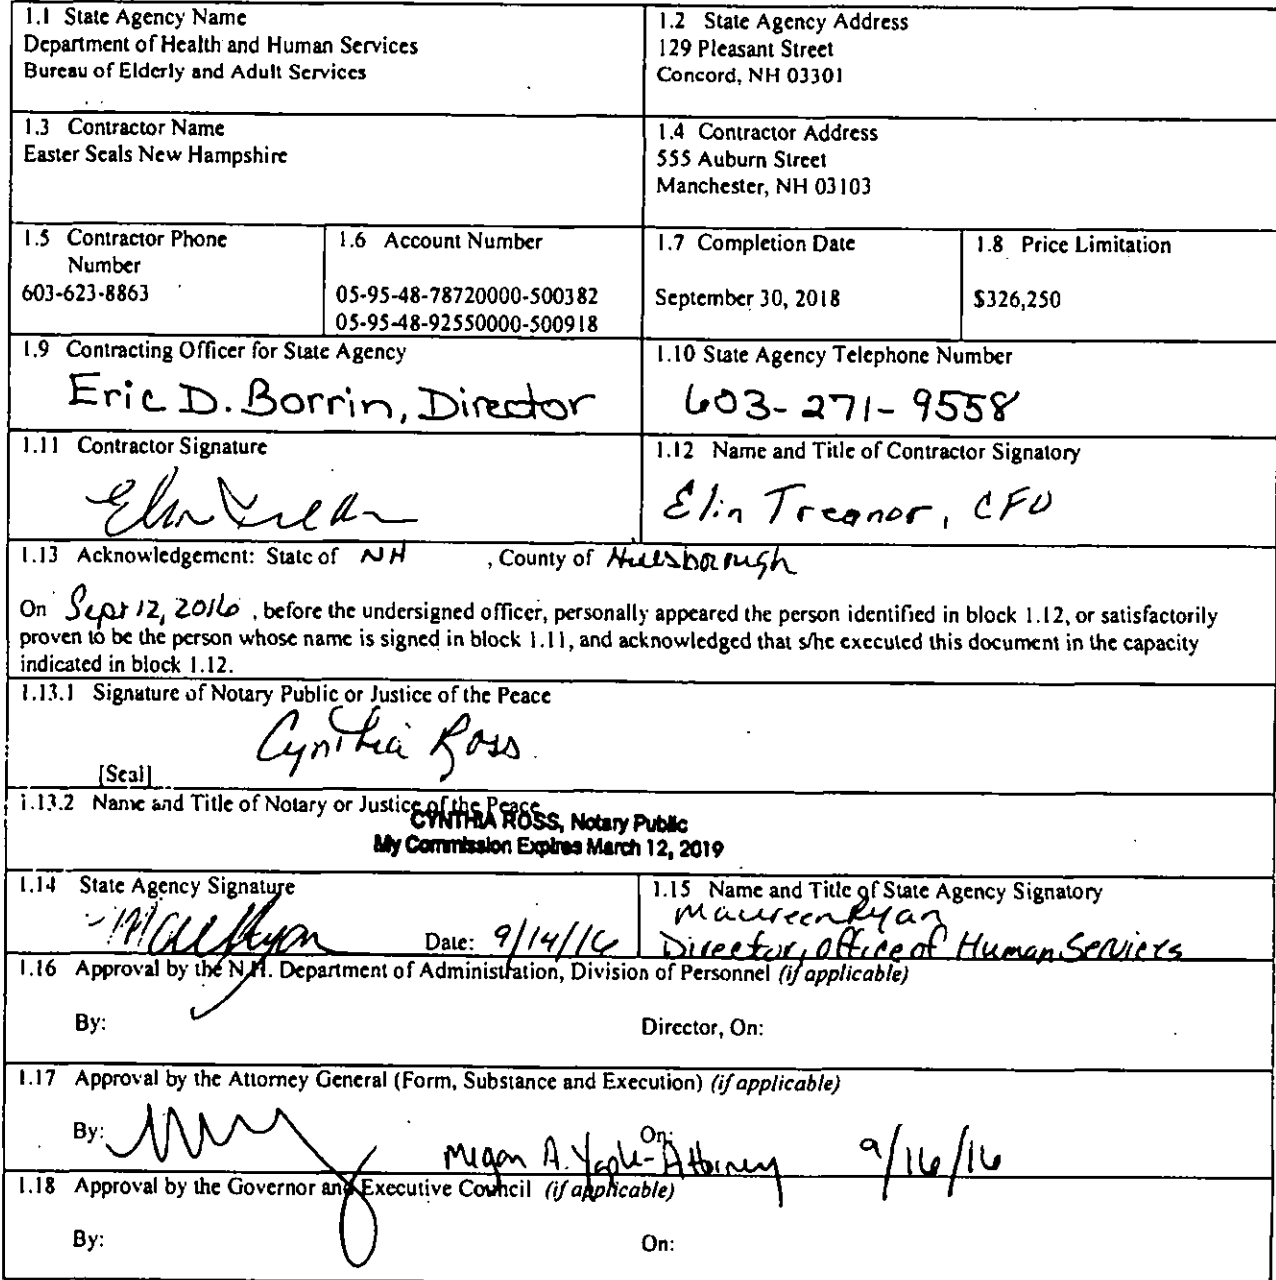 1.1 State Agency Name
Department of Health and Human Services
Bureau of Elderly and Adult Services
1.2 State Agency Address
129 Pleasant Street
Concord, NH 03301
1.3 Contractor Name
Easter Seals New Hampshire
1.4 Contractor Address
555 Auburn Street
Manchester, NH 03103
1.5 Contractor Phone
Number
603-623-8863
1.6 Account Number
05-95-48-78720000-500382
05-95-48-92550000-500918
1.7 Completion Date
September 30, 2018
1.8 Price Limitation
$326,250
1.9 Contracting Officer for State Agency
Eric D. Borrin, Director
1.10 State Agency Telephone Number
603-271-9558
1.11 Contractor Signature
Elin Treanor
1.12 Name and Title of Contractor Signatory
Elin Treanor, CFO
1.13 Acknowledgement: State of NH , County of Hillsborough
On Sept 12, 2016 , before the undersigned officer, personally appeared the person identified in block 1.12, or satisfactorily
proven to be the person whose name is signed in block 1.11, and acknowledged that s/he executed this document in the capacity
indicated in block 1.12.
1.13.1 Signature of Notary Public or Justice of the Peace
Cynthia Ross
[Seal]
1.13.2 Name and Title of Notary or Justice of the Peace
CYNTHIA ROSS, Notary Public
My Commission Expires March 12, 2019
1.14 State Agency Signature
Date: 9/14/16
1.15 Name and Title of State Agency Signatory
Maureen Ryan
Director, Office of Human Services
1.16 Approval by the N.H. Department of Administration, Division of Personnel (if applicable)
By:
Director, On:
1.17 Approval by the Attorney General (Form, Substance and Execution) (if applicable)
By:
On:
Megan A. Yaple - Attorney 9/16/16
1.18 Approval by the Governor and Executive Council (if applicable)
By:
On: